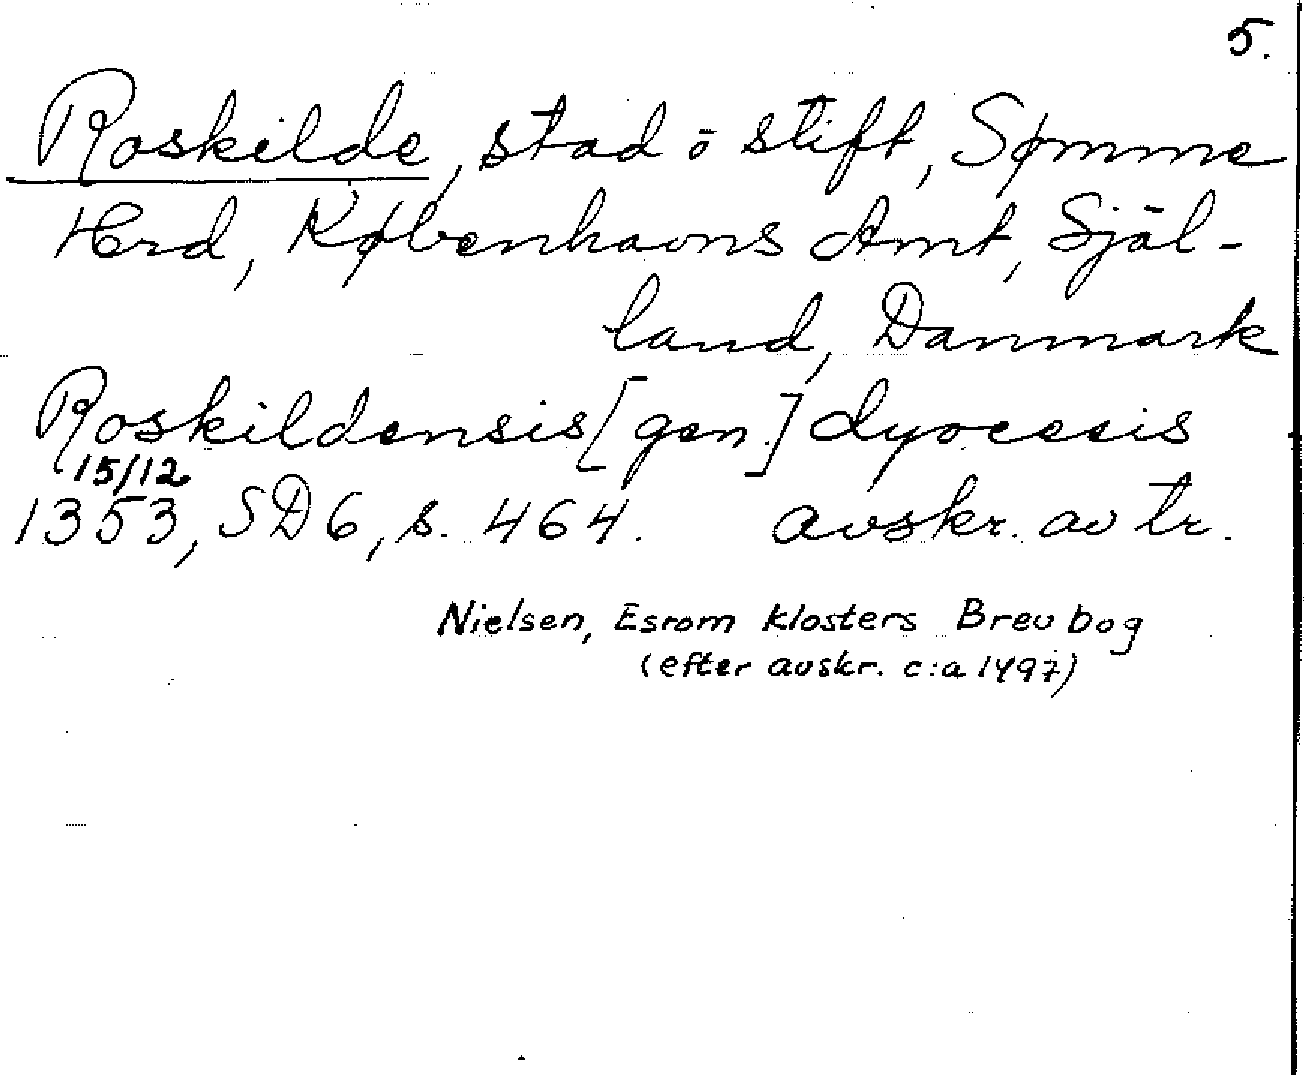 5.
Roskilde, stad o stift, Sømme
Hrd, Københavns Amt, Själ-
land, Danmark
Roskildensis [gen.] dyocesis
15/12
1353, SD 6, s. 464. avskr. av tr.
Nielsen, Esrom Klosters Brevbog
(efter avskr. c:a 1497)